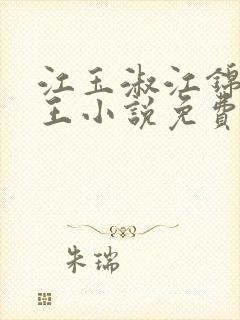 江玉淑江锦
王小说免费
朱瑞